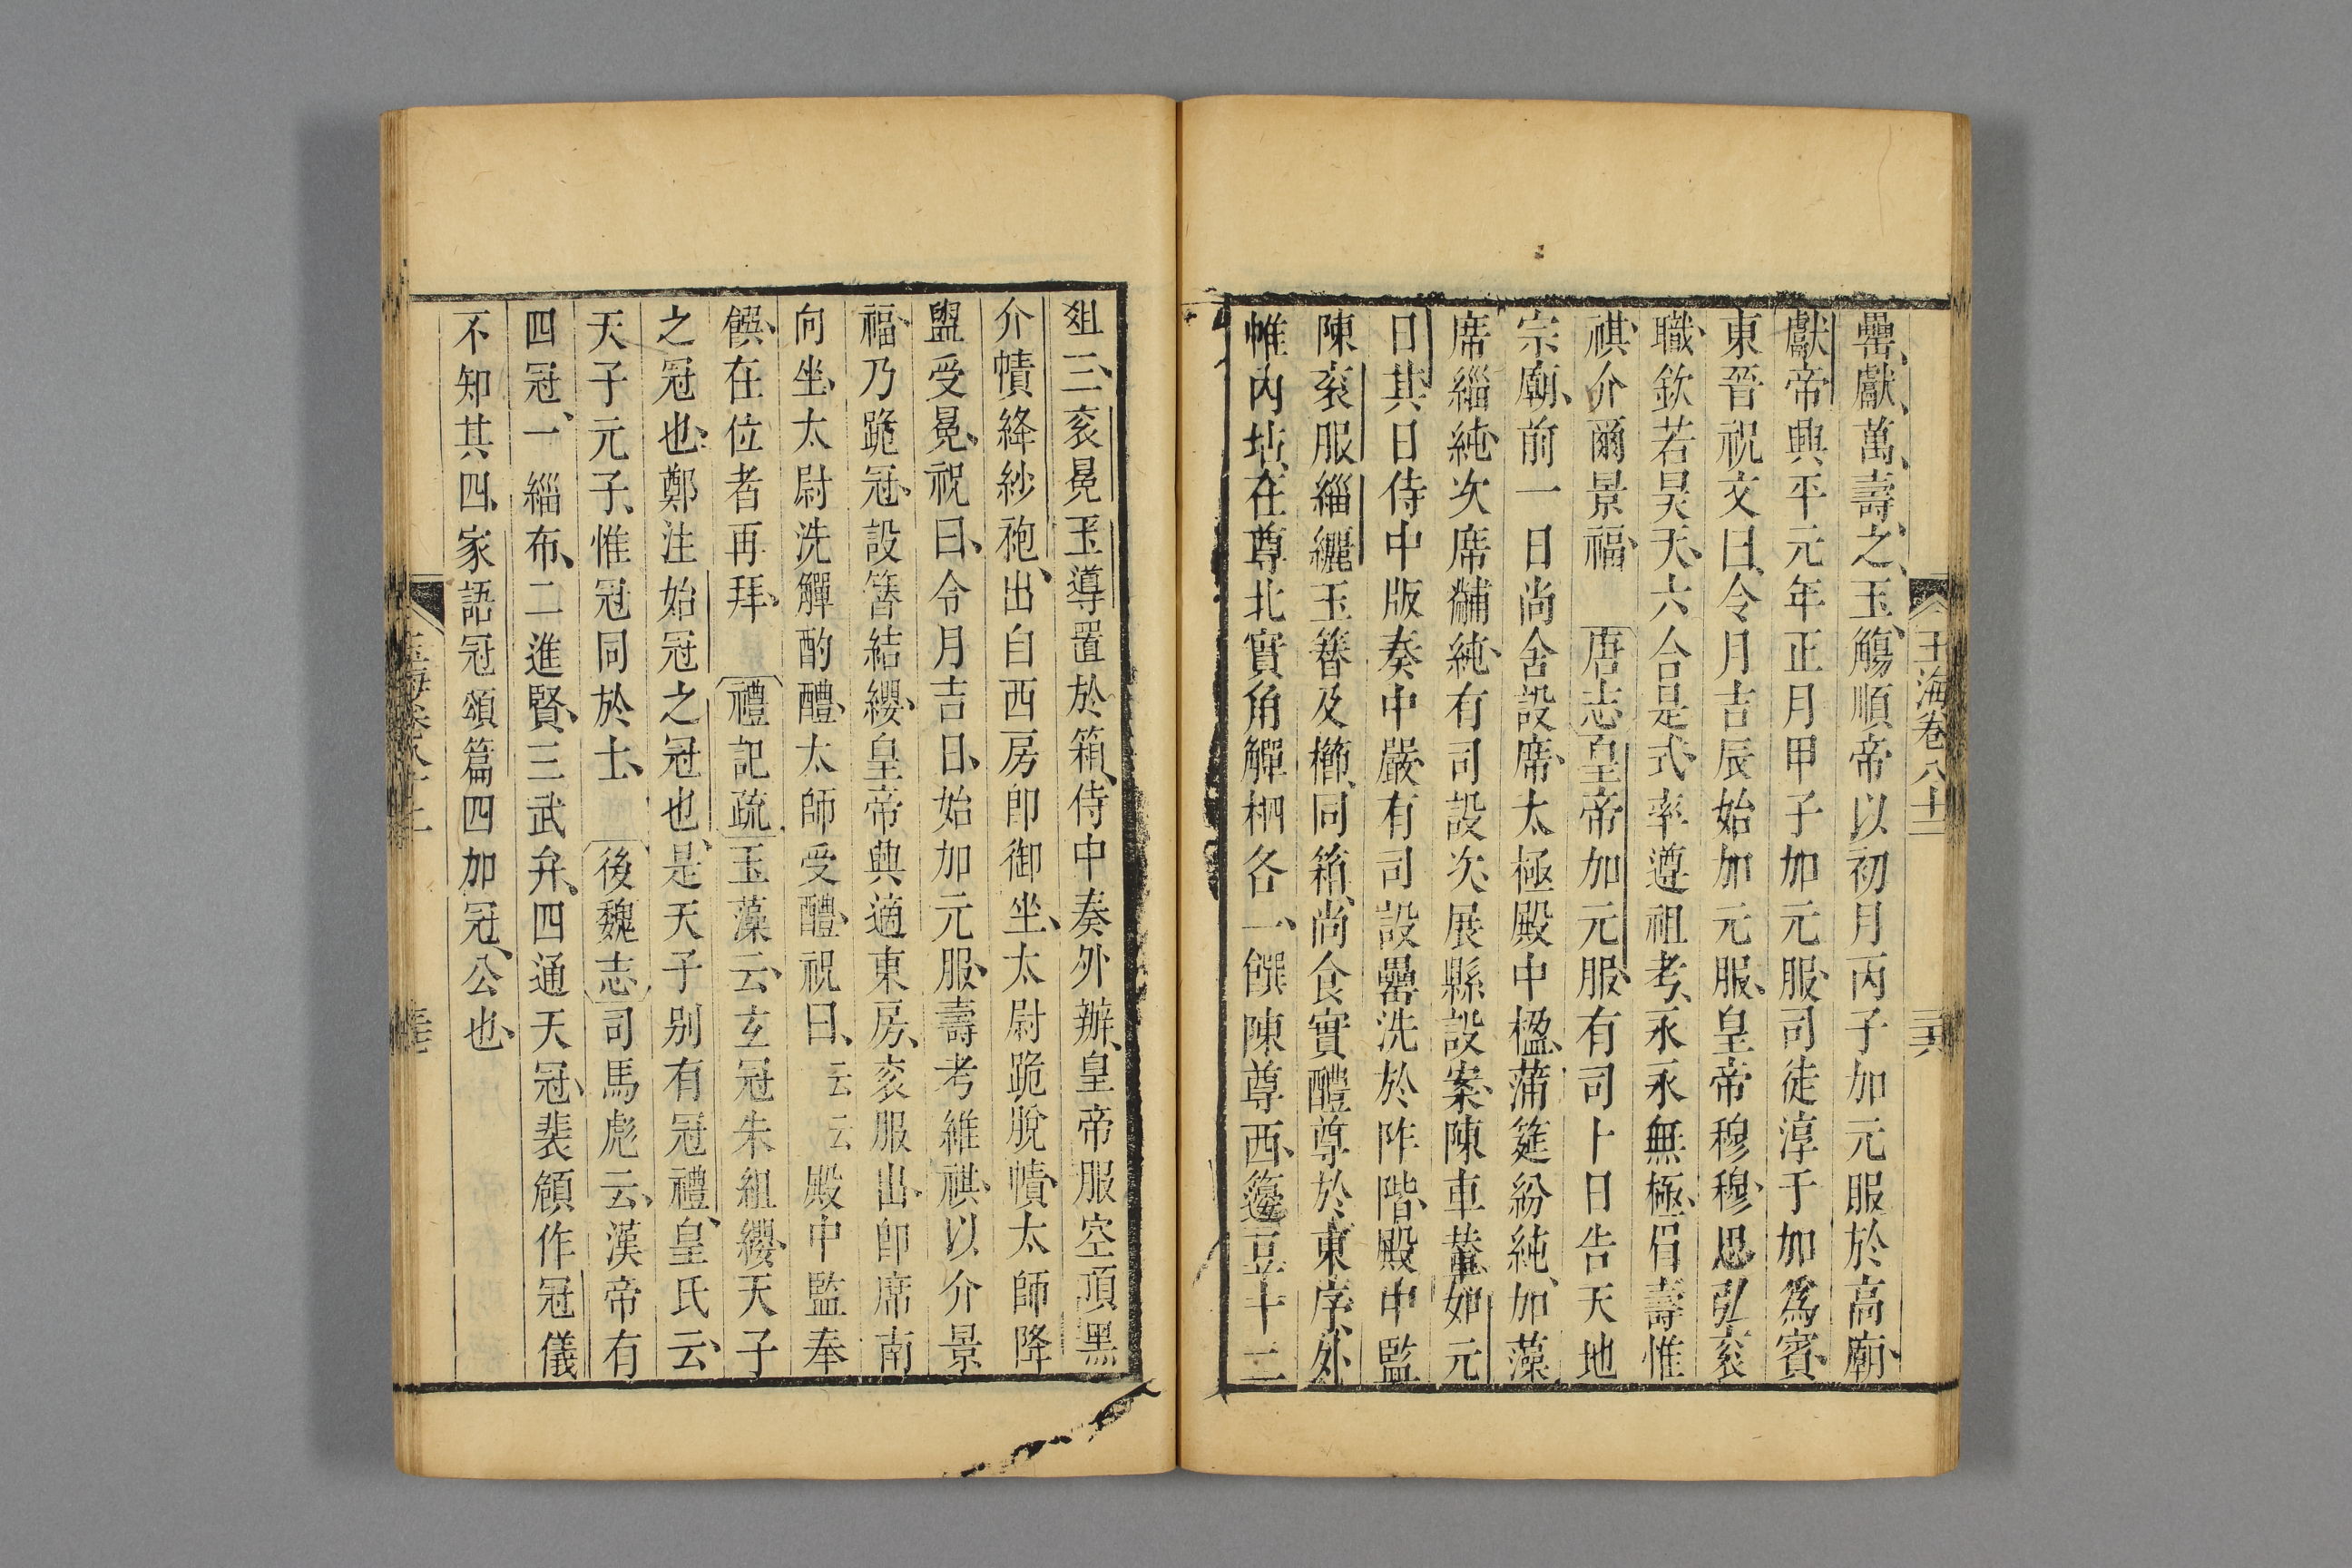 玉海卷八十二 二十六
罍獻萬壽之玉觴順帝以初月丙子加元服於高廟
獻帝興平元年正月甲子加元服司徒淳于加爲賓
東晉祝文曰令月吉辰始加元服皇帝穆穆思弘衮
職欽若昊天六合是式率遵祖考永永無極眉壽惟
祺介爾景福 唐志皇帝加元服有司卜日告天地
宗廟前一日尚舍設席太極殿中楹蒲筵紛純加藻
席緇純次席黼純有司設次展縣設案陳車輦如元
日其日侍中版奏中嚴有司設罍洗於阼階殿中監
陳衮服緇纚玉簪及櫛同箱尚食實醴尊於東序外
帷内坫在尊北實角觶柶各一饌陳尊西籩豆十二
俎三衮冕玉導置於箱侍中奏外辦皇帝服空頂黑
介幘絳紗袍出自西房即御坐太尉跪脫幘太師降
盥受冕祝曰令月吉日始加元服壽考維祺以介景
福乃跪冠設簪結纓皇帝興適東房衮服出即席南
向坐太尉洗觶酌醴太師受醴祝曰云云殿中監奉
饌在位者再拜 禮記疏玉藻云玄冠朱組纓天子
之冠也鄭注始冠之冠也是天子别有冠禮皇氏云
天子元子惟冠同於士 後魏志司馬彪云漢帝有
四冠一緇布二進賢三武弁四通天冠裴頠作冠儀
不知其四家語冠頌篇四加冠公也